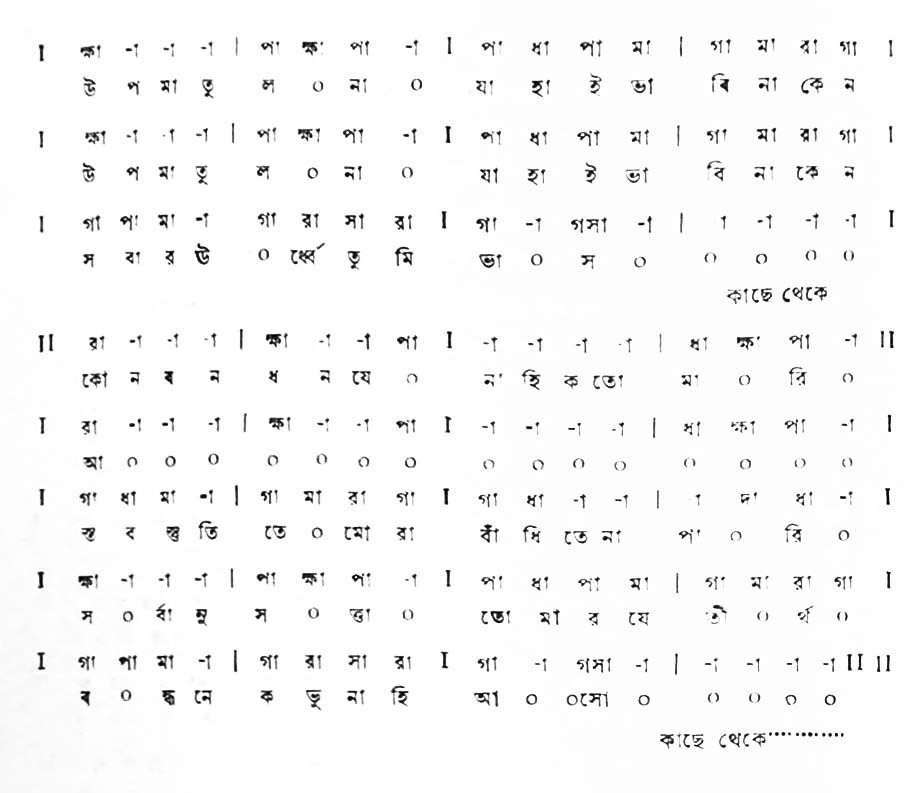 I ক্ষা -া -া -া | পা ক্ষা পা -া I পা ধা পা মা | গা মা রা গা I
উ প মা তু ল ০ না ০ যা হা ই ভা বি না কে ন
I ক্ষা -া -া -া | পা ক্ষা পা -া I পা ধা পা মা | গা মা রা গা I
উ প মা তু ল ০ না ০ যা হা ই ভা বি না কে ন
I গা পা মা -া গা রা সা রা I গা -া গসা -া | া -া -া -া I
স বা র ঊ ০ র্ধ্বে তু মি ভা ০ স ০ ০ ০ ০ ০
কাছে থেকে
II রা -া -া -া | ক্ষা -া -া পা I -া -া -া -া | ধা ক্ষা পা -া II
কো ন ব ন ধ ন যে ০ না হি ক তো মা ০ রি ০
I রা -া -া -া | ক্ষা -া -া পা I -া -া -া -া | ধা ক্ষা পা -া I
আ ০ ০ ০ ০ ০ ০ ০ ০ ০ ০ ০ ০ ০ ০ ০
I গা ধা মা -া | গা মা রা গা I গা ধা -া -া | া দা ধা -া I
স্ত ব স্তু তি তে ০ মো রা বাঁ ধি তে না পা ০ রি ০
I ক্ষা -া -া -া | পা ক্ষা পা -া I পা ধা পা মা | গা মা রা গা I
স ০ র্বা নু স ০ ত্তা ০ তো মা র যে তী ০ র্থ ০
I গা পা মা -া | গা রা সা রা I গা -া গসা -া | -া -া -া -া II II
ব ০ ন্ধ নে ক ভু না হি আ ০ ০সো ০ ০ ০ ০ ০
কাছে থেকে.............